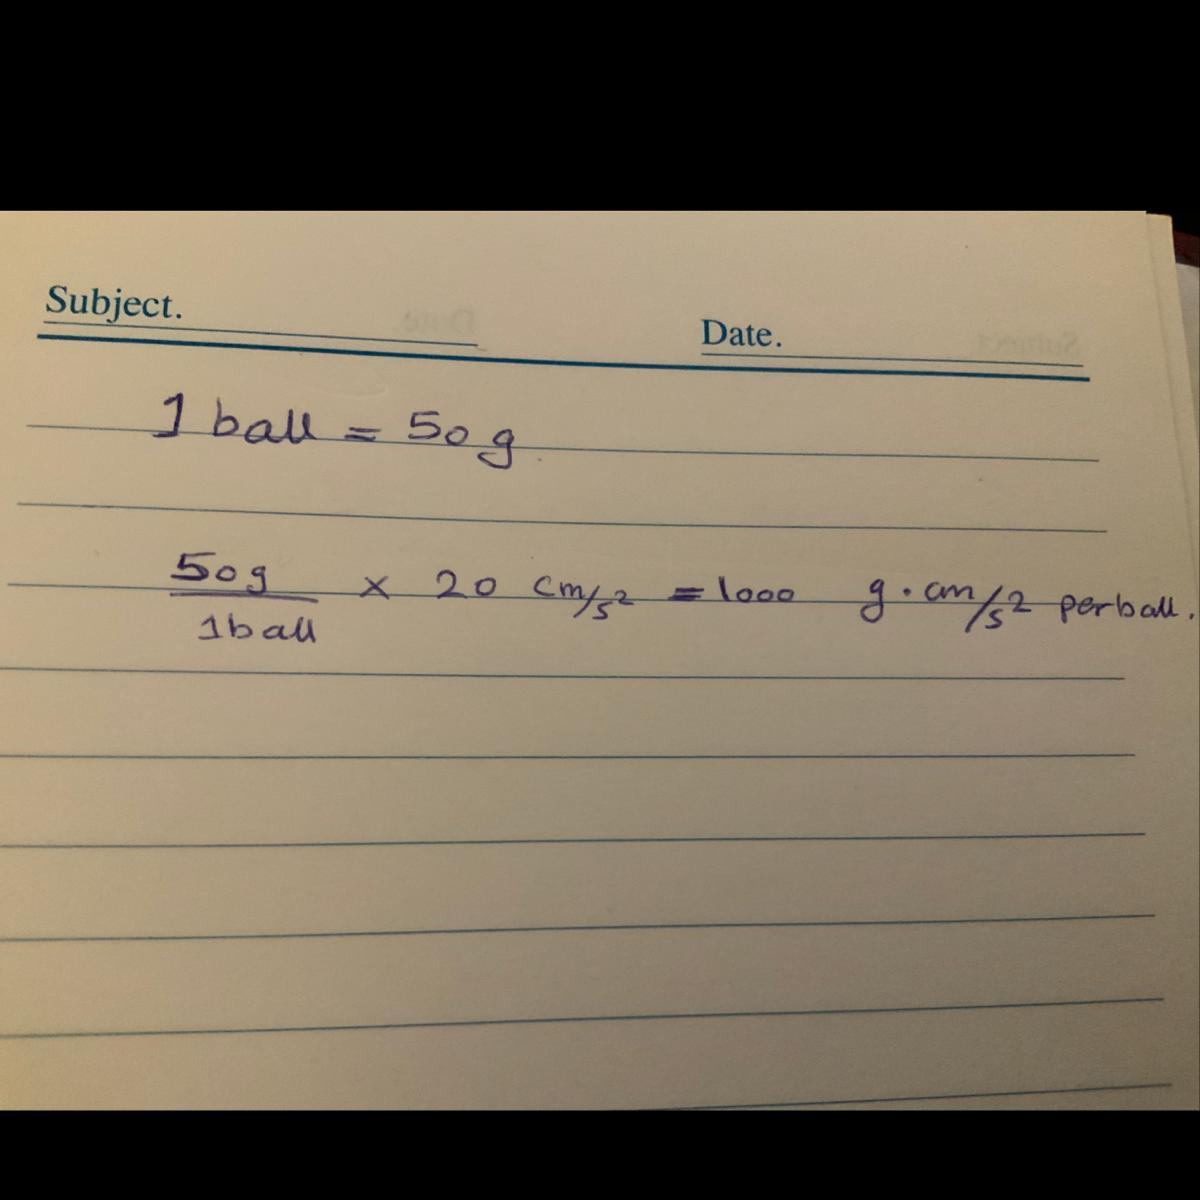 Subject.
Date.
1 ball = 50 g
50g
1ball
× 20 cm/s² = 1000 g·cm/s² per ball.